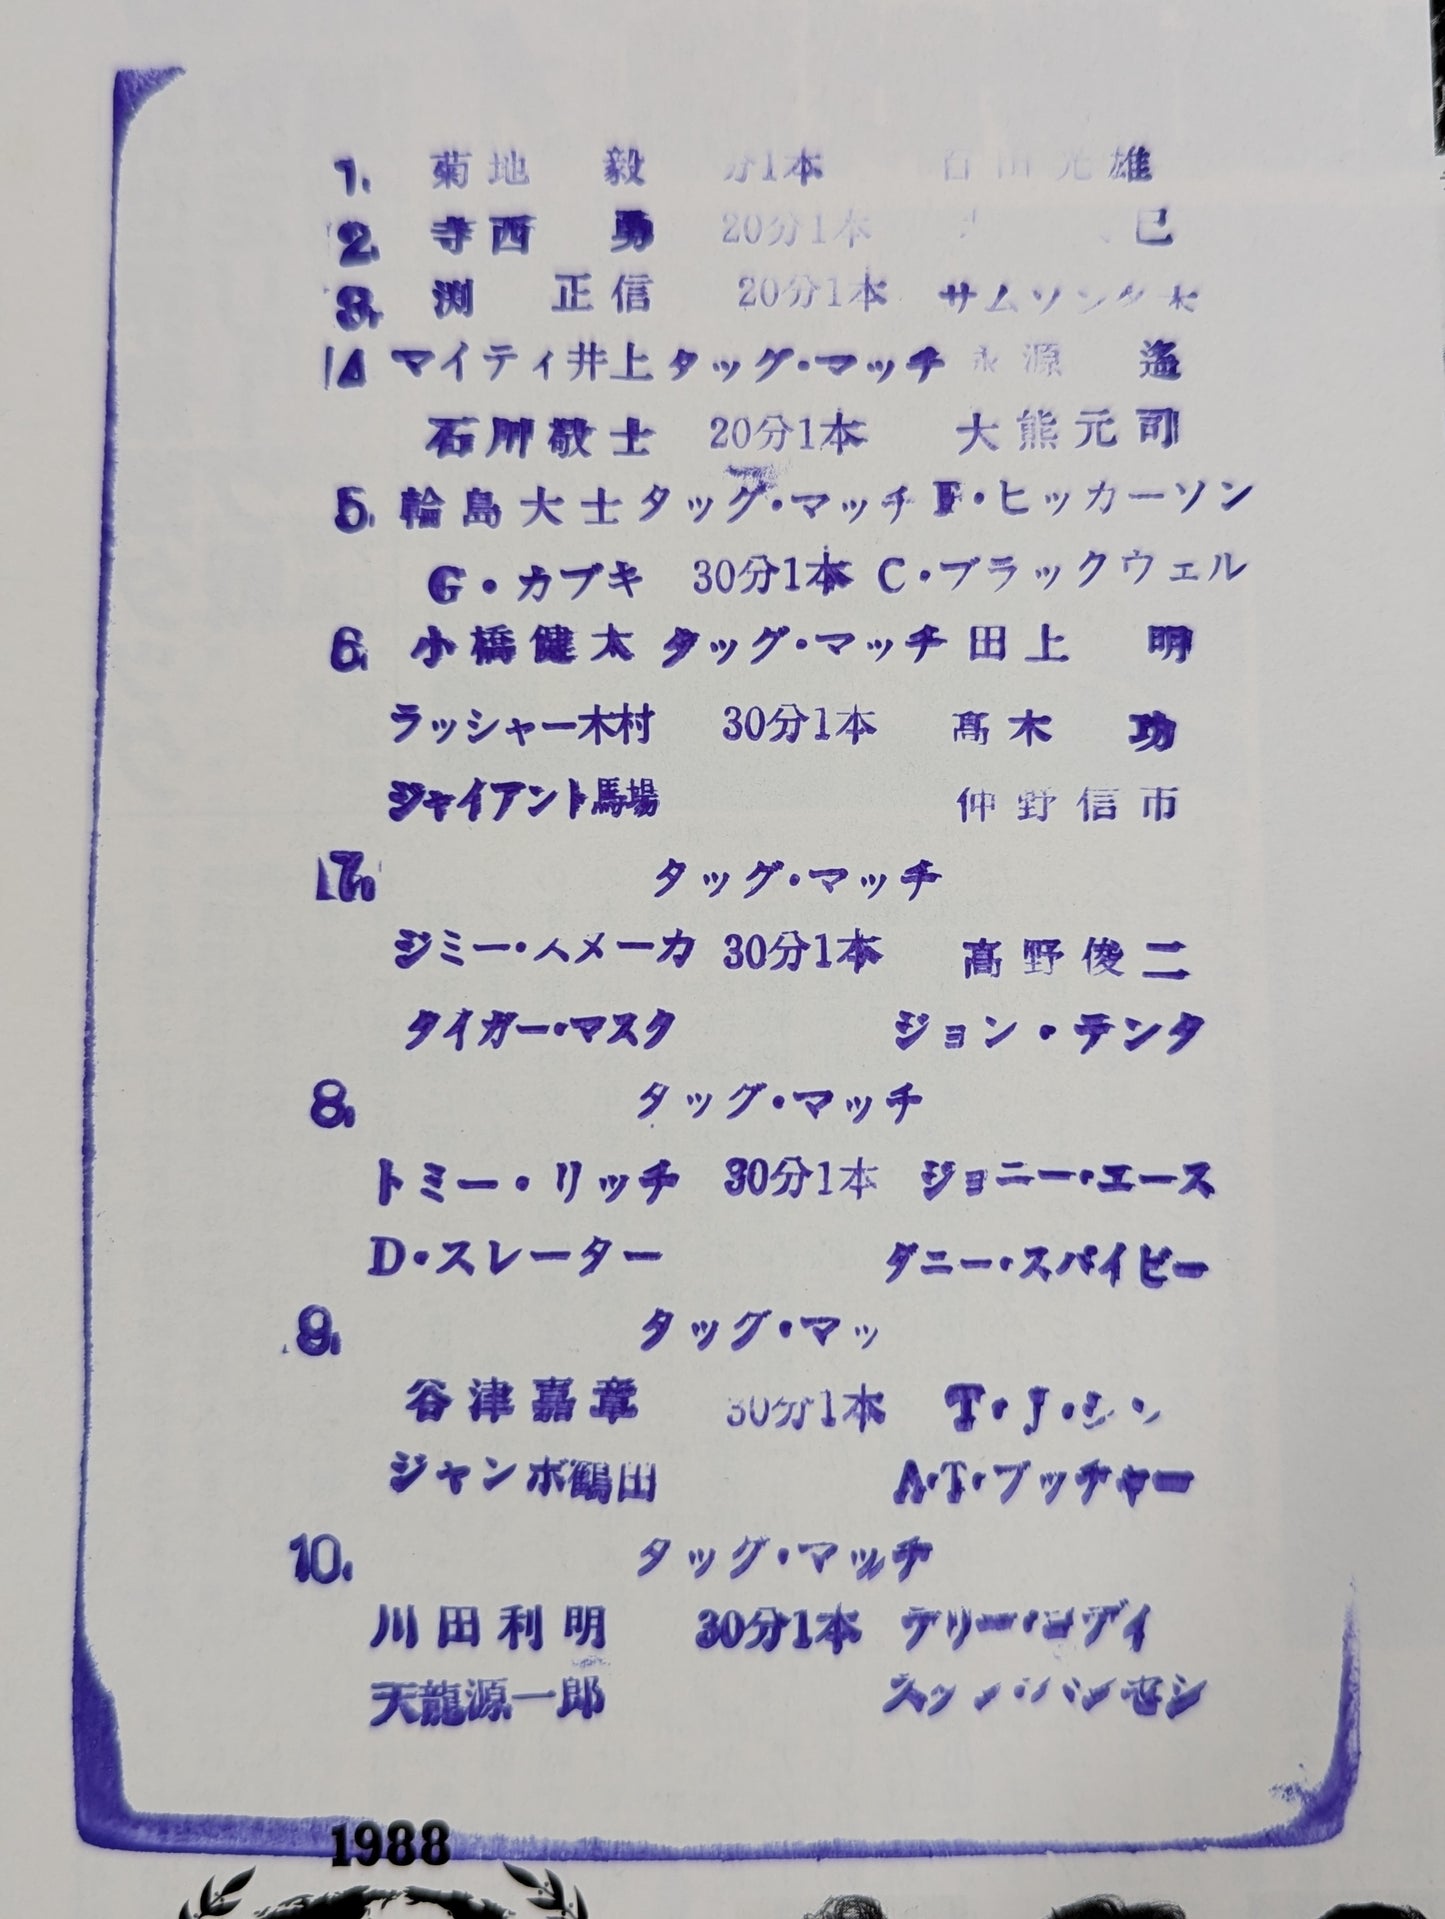 1. 菊地 毅 分1本 百田光雄
2. 寺西 勇 20分1本 巳
3. 渕 正信 20分1本 サムソン冬木
4 マイティ井上 タッグ・マッチ 永源 遙
石川敬士 20分1本 大熊元司
5. 輪島大士 タッグ・マッチ F・ヒッカーソン
G・カブキ 30分1本 C・ブラックウェル
6. 小橋健太 タッグ・マッチ 田上 明
ラッシャー木村 30分1本 高木 功
ジャイアント馬場 仲野信市
7. タッグ・マッチ
ジミー・スヌーカ 30分1本 高野俊二
タイガー・マスク ジョン・テンタ
8. タッグ・マッチ
トミー・リッチ 30分1本 ジョニー・エース
D・スレーター ダニー・スパイビー
9. タッグ・マッ
谷津嘉章 30分1本 T・J・シン
ジャンボ鶴田 A・T・ブッチャー
10. タッグ・マッチ
川田利明 30分1本 テリー・ゴディ
天龍源一郎 スタン・ハンセン
1988